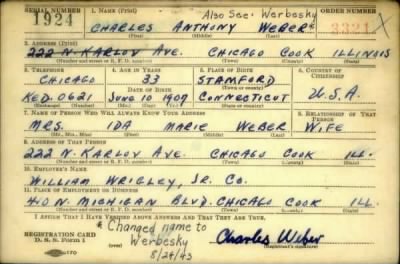 SERIAL NUMBER 1. NAME (Print) Also See: Werbesky ORDER NUMBER
1924 CHARLES ANTHONY WEBER* 3321 X
(First) (Middle) (Last)
2. ADDRESS (Print)
222 N. KARLOV AVE. CHICAGO COOK ILLINOIS
(Number and street or R. F. D. number) (Town) (County) (State)
3. TELEPHONE 4. AGE IN YEARS 5. PLACE OF BIRTH 6. COUNTRY OF CITIZENSHIP
CHICAGO 33 STAMFORD
DATE OF BIRTH (Town or county)
KED. 0621 JUNE 10 1907 CONNECTICUT U.S.A.
(Mo.) (Day) (Yr.) (State or country)
7. NAME OF PERSON WHO WILL ALWAYS KNOW YOUR ADDRESS 8. RELATIONSHIP OF THAT PERSON
MRS. IDA MARIE WEBER WIFE
(Mr., Mrs., Miss) (First) (Middle) (Last)
9. ADDRESS OF THAT PERSON
222 N. KARLOV AVE. CHICAGO COOK ILL.
(Number and street or R. F. D. number) (Town) (County) (State)
10. EMPLOYER'S NAME
WILLIAM WRIGLEY, JR. CO.
11. PLACE OF EMPLOYMENT OR BUSINESS
410 N. MICHIGAN BLVD. CHICAGO COOK ILL.
(Number and street or R. F. D. number) (Town) (County) (State)
I AFFIRM THAT I HAVE VERIFIED ABOVE ANSWERS AND THAT THEY ARE TRUE.
REGISTRATION CARD * Changed name to
D. S. S. Form 1 Werbesky Charles Weber
8/24/43 (Registrant's signature)